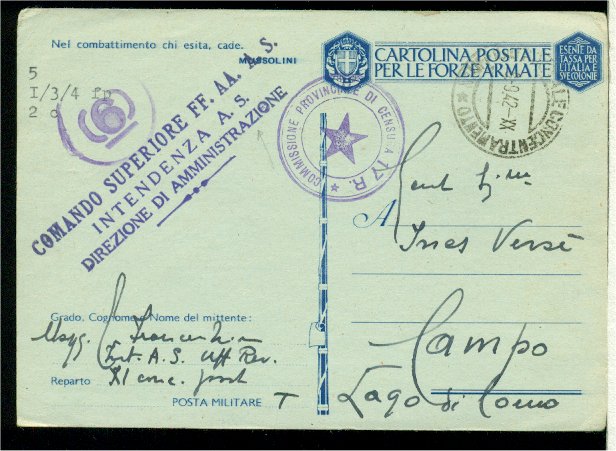 Nel combattimento chi esita, cade.
MUSSOLINI
5
I/3/4 fp
2 d
6
COMANDO SUPERIORE FF. AA. A. S.
INTENDENZA A. S.
DIREZIONE DI AMMINISTRAZIONE
CARTOLINA POSTALE
PER LE FORZE ARMATE
ESENTE DA
TASSA PER
L'ITALIA E
SVE COLONIE
COMMISSIONE PROVINCIALE DI CENSURA 17 R.
CONCENTRAMENTO
942 XX
A
Gent
Ines Versè
Campo
Lago di Como
Grado, Cognome e Nome del mittente:
Magg.
Int. A.S. Uff. Rev.
Reparto XI conc. post
POSTA MILITARE T